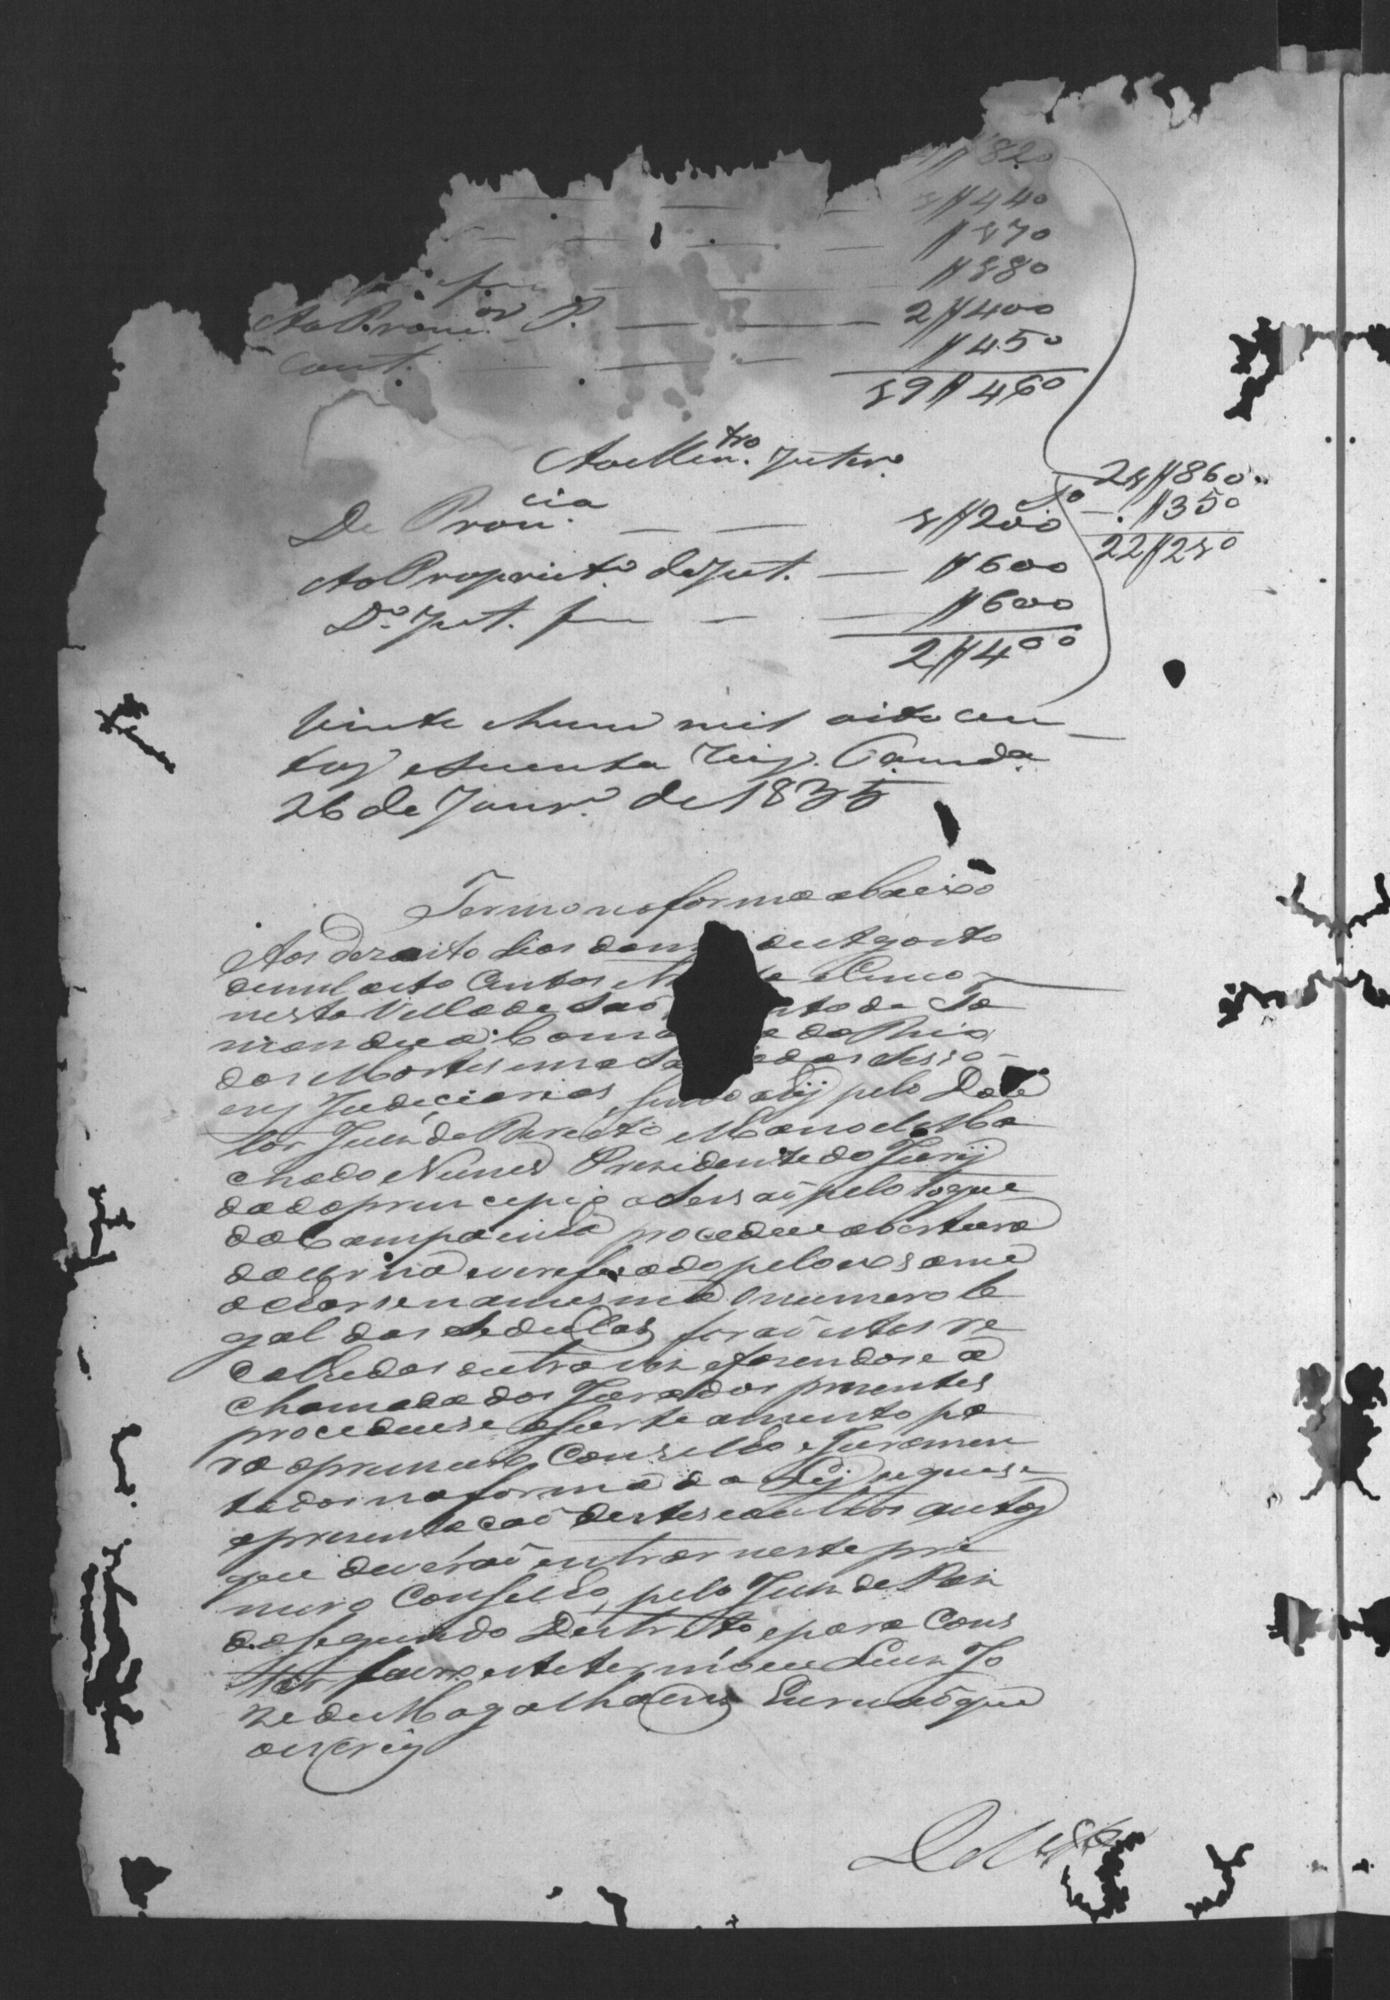 1//820
1//440
//170
//180
Ao Prom.or P. — 2//400
Cont. — //450
19//460
Ao Men.tro Inter.o
De Prov.cia — 1//200
Ao Propriet.o de Jut. — //600
D.o Jut. — //600
2//400
21//860
//350
22//210
Vinte e hum mil oito cen
tos e secenta reis. Tamd.a
26 de Janr.o de 1835
Termo na forma abaixo
Aos dezoito dias do mez de Agosto
de mil oito Centos e Cinco
nesta Villa de São Bento do Ta
manduá Comarca do Rio
das Mortes em a Salla das Sesso
ens Judiciarias, sendo ahi pelo Dou
tor Juis de Direito Manoel Ma
chado Nunes Presidente do Jury
dado principio a Sessaõ pelo toque
da Campainha procedeu abertura
da urna e verificado pelo exame
acharse na mesma o numero le
gal das Sedulas foraõ estas re
colhidas outra ves e fazendose a
chamada dos Jurados presentes
procedeuse o sorteamento pa
ra o primeiro Conselho e Juramen
tados na forma da Ley seguese
apresentaçaõ destes e outros autos
que deveraõ entrar neste pri
meiro Conselho, pelo Juis de Pas
do segundo Destrito, e para Cons
tar faço este termo eu Luis Jo
ze de Magalhaens Escrivaõ que
o escrevy